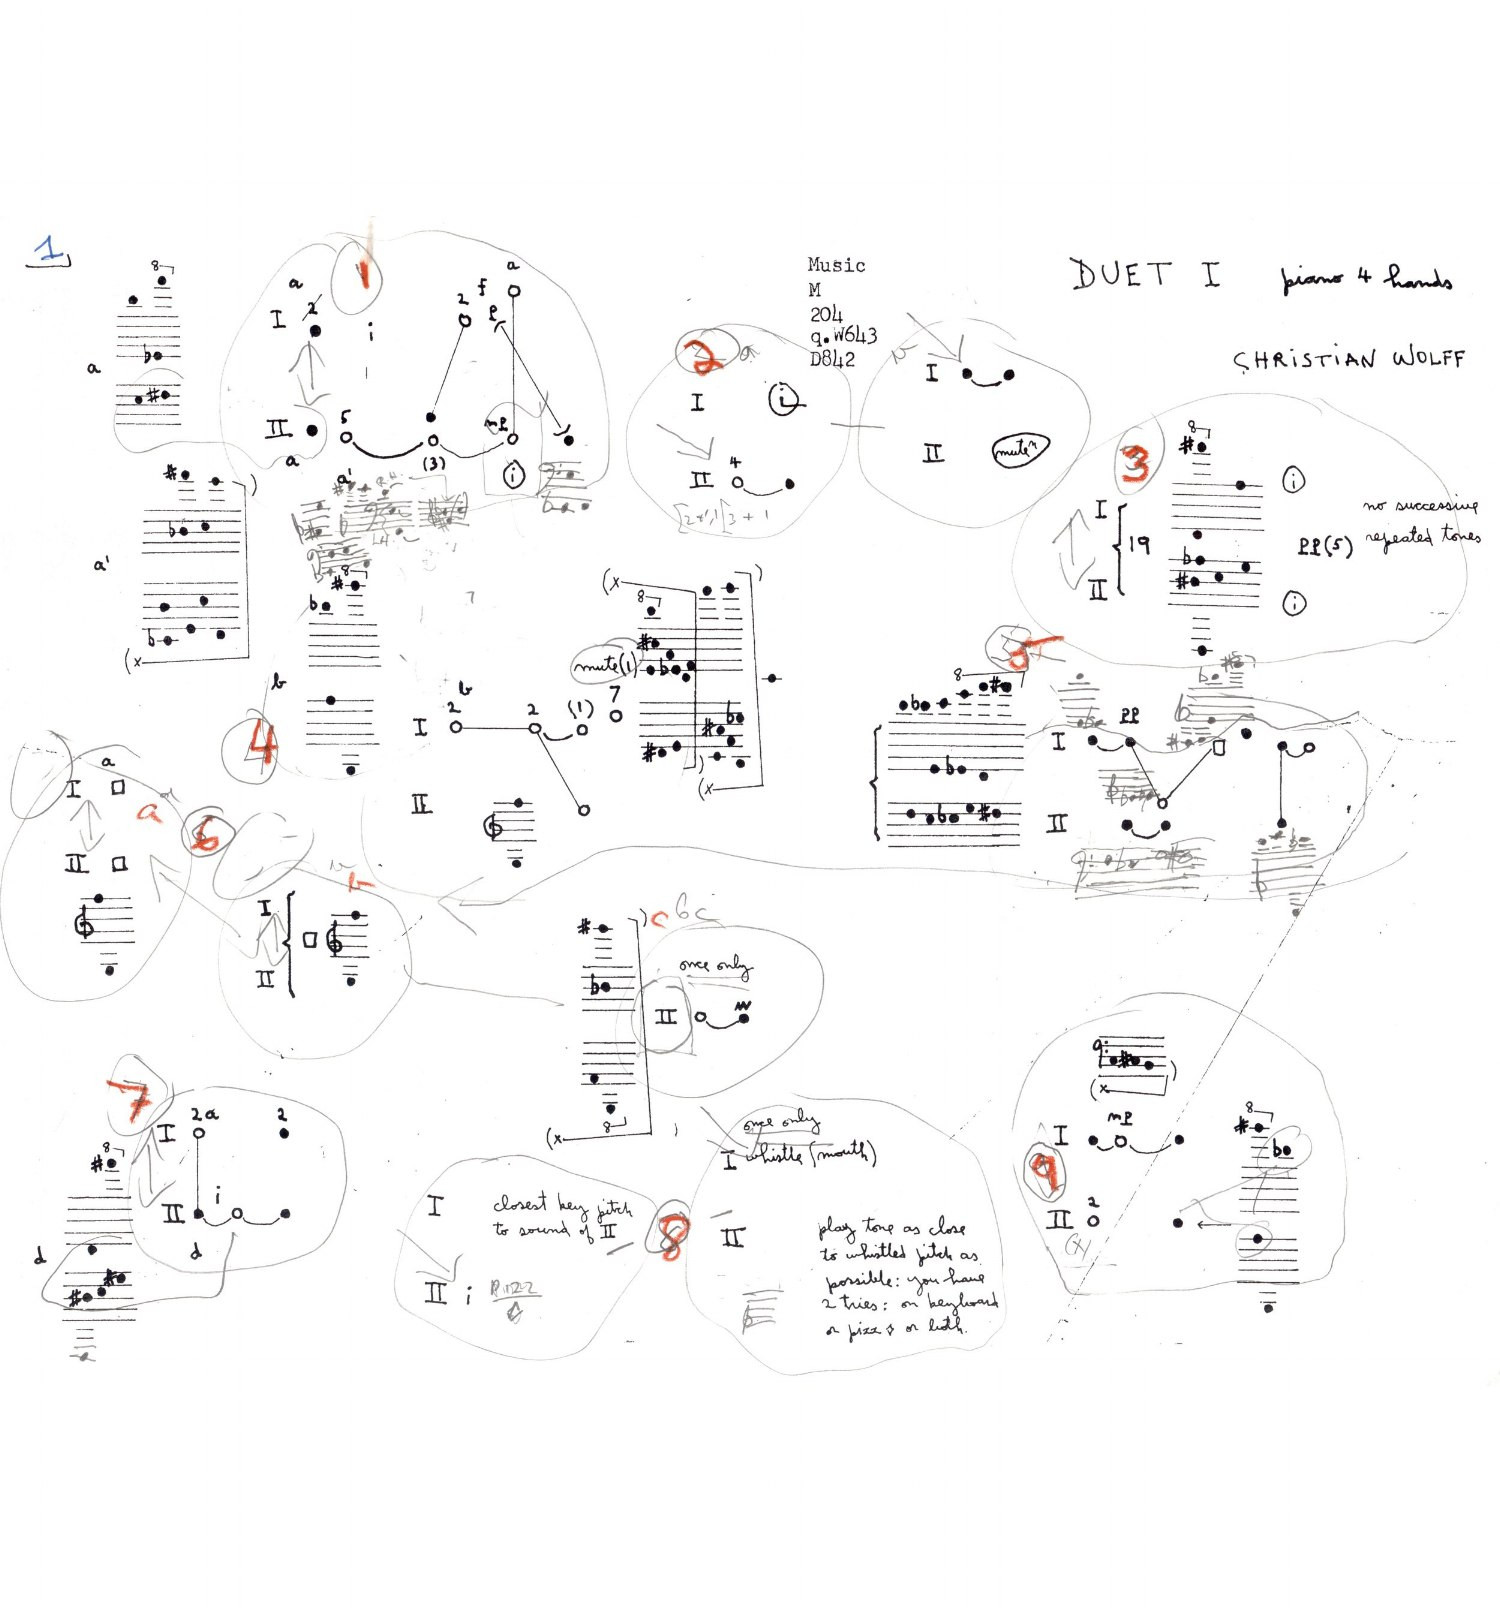 1
Music
M
204
q.W643
D842
DUET I
piano 4 hands
CHRISTIAN WOLFF
8
a
a
I 2
1
i
2
f
a
p
II
a
5
(3)
mp
i
a'
a'
(x
)
2
a
I
i
II 4
3 + 1
I
II
mute
3
8
I
II
19
i
pp(5)
i
no successive
repeated tones
8
b
4
b
I 2
2
(1)
7
II
mute(1)
(x
8
)
(x
)
5
8
I
pp
II
a
I
II
a
6
I
II
b
c
6c
once only
II
)
8
(x
7
8
d
I 2a
2
II
i
d
I
closest key pitch
to sound of II
II i
Pizz
8
once only
I whistle (mouth)
II
play tone as close
to whistled pitch as
possible: you have
2 tries: on keyboard
or pizz or both.
9
(x
)
I
mp
II 2
(x)
8